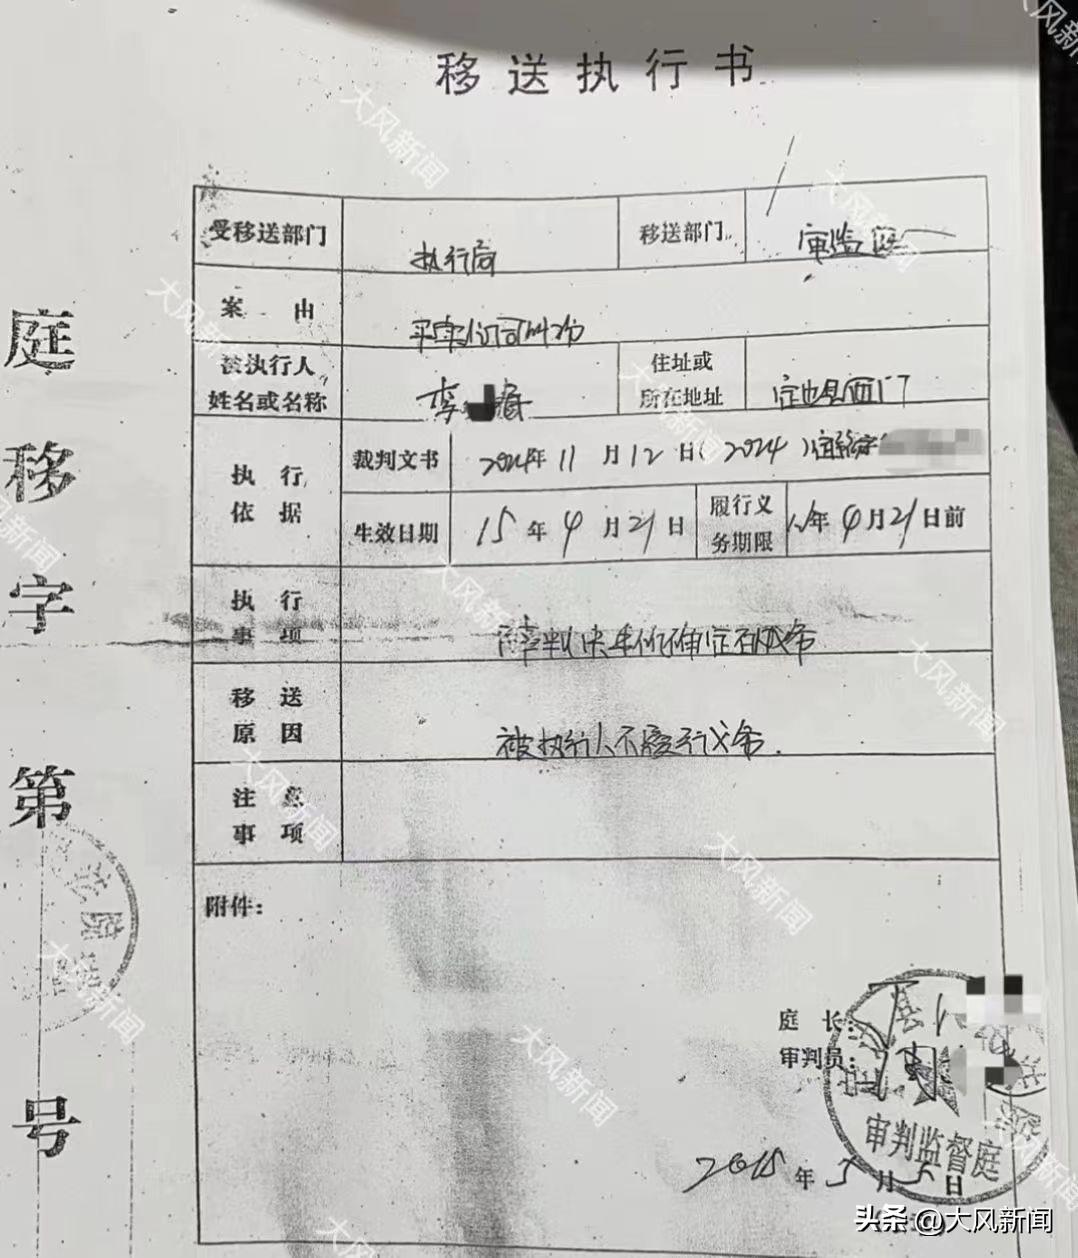 移送执行书
受移送部门 执行局 移送部门 审监庭
案由 买卖合同纠纷
被执行人姓名或名称 李 住址或所在地址 定边县西门
执行依据 裁判文书 2024年11月12日(2024)
生效日期 15年4月21日 履行义务期限 年4月21日前
执行事项
移送原因 被执行人不履行义务.
注意事项
附件:
庭长:
审判员:
审判监督庭
2015年5月5日
庭移字第 号
大风新闻
头条 @大风新闻